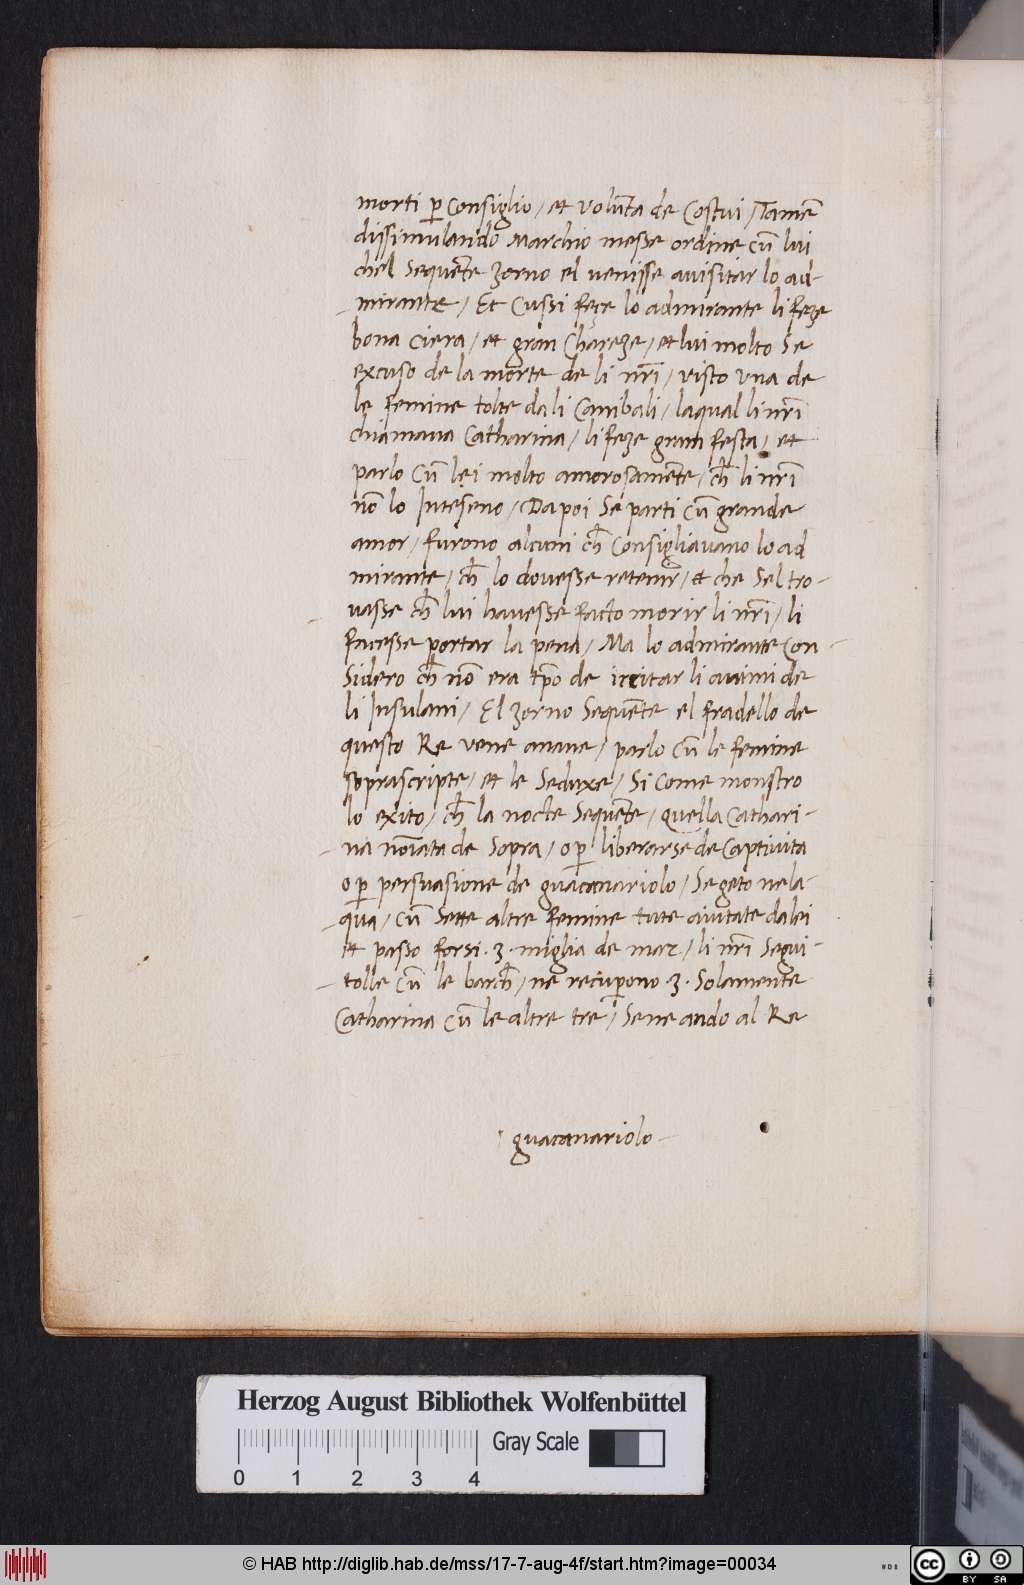 morti p̲ Consiglio / et volūta de Costui / Tamē
dissimulando Marchio messe ordine cū lui
chel Sequēte zorno el venisse avisitar lo ad-
mirante / Et Cussi feçe lo admirante li feze
bona ciera / et gran Chareze / et lui molto Se
excuso de la morte de li nr̄i / visto una de
le femine tolte da li Canibali / laqual li nr̄i
chiamava Catharina / li feze gran festa / et
parlo Cū lei molto amorosamēte / ch̄ li nr̄i
nō lo Inteseno / Dapoi Se parti Cū grande
amor / furono alcuni ch̄ Consigliavano lo ad
mirante / ch̄ lo dovesse retenir / et che Sel tro-
vasse ch̄ lui havesse facto morir li nr̄i / li
facesse portar la pena / Ma lo admirante Con-
Sidero ch̄ nō era tp̄o de irritar li animi de
li Insulani / El zorno Sequēte el fradello de
questo Re vene anave / parlo Cū le femine
soprascripte / et le Seduxe / Si Come monstro
lo exito / ch̄ la nocte Sequēte / quella Cathari-
na noīata de Sopra / o p̲ liberarse de Captivita
o p̲ persuasione de guacanariolo / Se geto nela-
qua / Cū Sette altre femine tute aiutate da lei
et passo forsi .3. miglia de mar / li nr̄i Segui-
tolle Cū le barch̄ / ne recup̲ono .3. Solamente
Catharina Cū le altre tre / Sene ando al Re
guacanariolo
Herzog August Bibliothek Wolfenbüttel
Gray Scale
0 1 2 3 4
© HAB http://diglib.hab.de/mss/17-7-aug-4f/start.htm?image=00034
WDB
cc BY SA